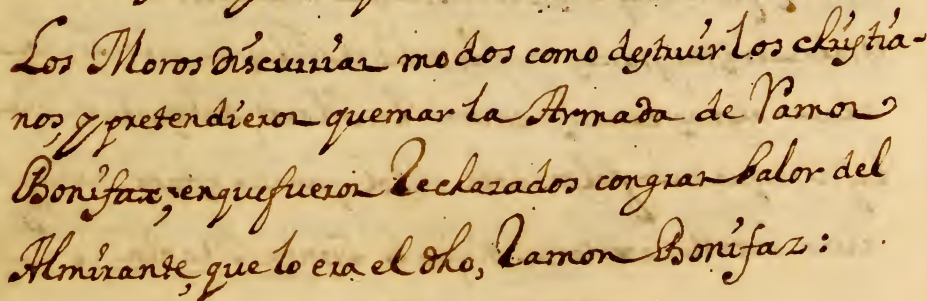 Los Moros discurrian modos como destruir los christia-
nos, y pretendieron quemar la Armada de Ramon
Bonifaz; en que fueron Rechazados con gran balor del
Almirante, que lo era el dho, Ramon Bonifaz: